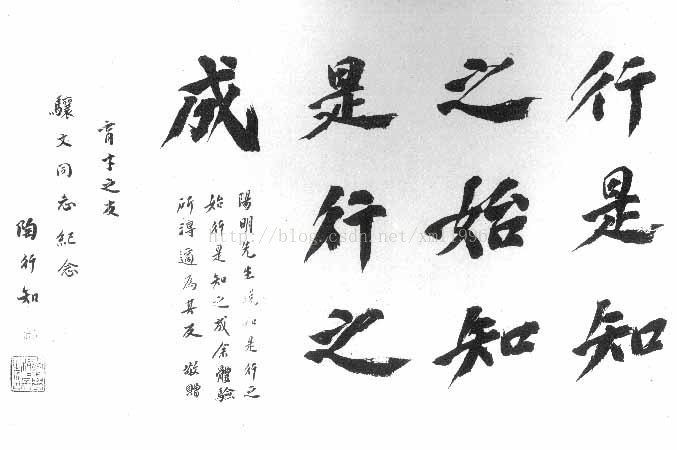 行是知
之始知
是行之
成
陽明先生說知是行之
始行是知之成余體驗
所得適為其反 敬贈
育才之友
驤文同志紀念
陶行知
http://blog.csdn.net/xm1996